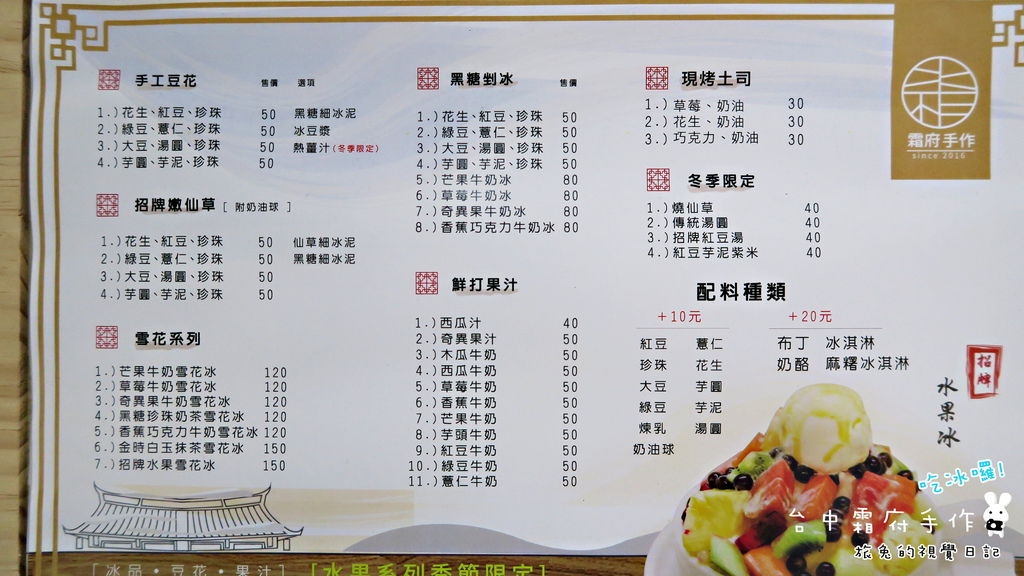 手工豆花 售價 選項
1.)花生、紅豆、珍珠 50 黑糖細冰泥
2.)綠豆、薏仁、珍珠 50 冰豆漿
3.)大豆、湯圓、珍珠 50 熱薑汁(冬季限定)
4.)芋圓、芋泥、珍珠 50
招牌嫩仙草 [ 附奶油球 ]
1.)花生、紅豆、珍珠 50 仙草細冰泥
2.)綠豆、薏仁、珍珠 50 黑糖細冰泥
3.)大豆、湯圓、珍珠 50
4.)芋圓、芋泥、珍珠 50
雪花系列
1.)芒果牛奶雪花冰 120
2.)草莓牛奶雪花冰 120
3.)奇異果牛奶雪花冰 120
4.)黑糖珍珠奶茶雪花冰 120
5.)香蕉巧克力牛奶雪花冰 120
6.)金時白玉抹茶雪花冰 150
7.)招牌水果雪花冰 150
黑糖剉冰 售價
1.)花生、紅豆、珍珠 50
2.)綠豆、薏仁、珍珠 50
3.)大豆、湯圓、珍珠 50
4.)芋圓、芋泥、珍珠 50
5.)芒果牛奶冰 80
6.)草莓牛奶冰 80
7.)奇異果牛奶冰 80
8.)香蕉巧克力牛奶冰 80
鮮打果汁
1.)西瓜汁 40
2.)奇異果汁 50
3.)木瓜牛奶 50
4.)西瓜牛奶 50
5.)草莓牛奶 50
6.)香蕉牛奶 50
7.)芒果牛奶 50
8.)芋頭牛奶 50
9.)紅豆牛奶 50
10.)綠豆牛奶 50
11.)薏仁牛奶 50
現烤土司
1.)草莓、奶油 30
2.)花生、奶油 30
3.)巧克力、奶油 30
冬季限定
1.)燒仙草 40
2.)傳統湯圓 40
3.)招牌紅豆湯 40
4.)紅豆芋泥紫米 40
配料種類
+10元 +20元
紅豆 薏仁 布丁 冰淇淋
珍珠 花生 奶酪 麻糬冰淇淋
大豆 芋圓
綠豆 芋泥
煉乳 湯圓
奶油球
霜府手作
since 2016
招牌
水果冰
吃冰囉!
台中霜府手作
旅兔的視覺日記
[冰品•豆花•果汁] [水果系列季節限定]